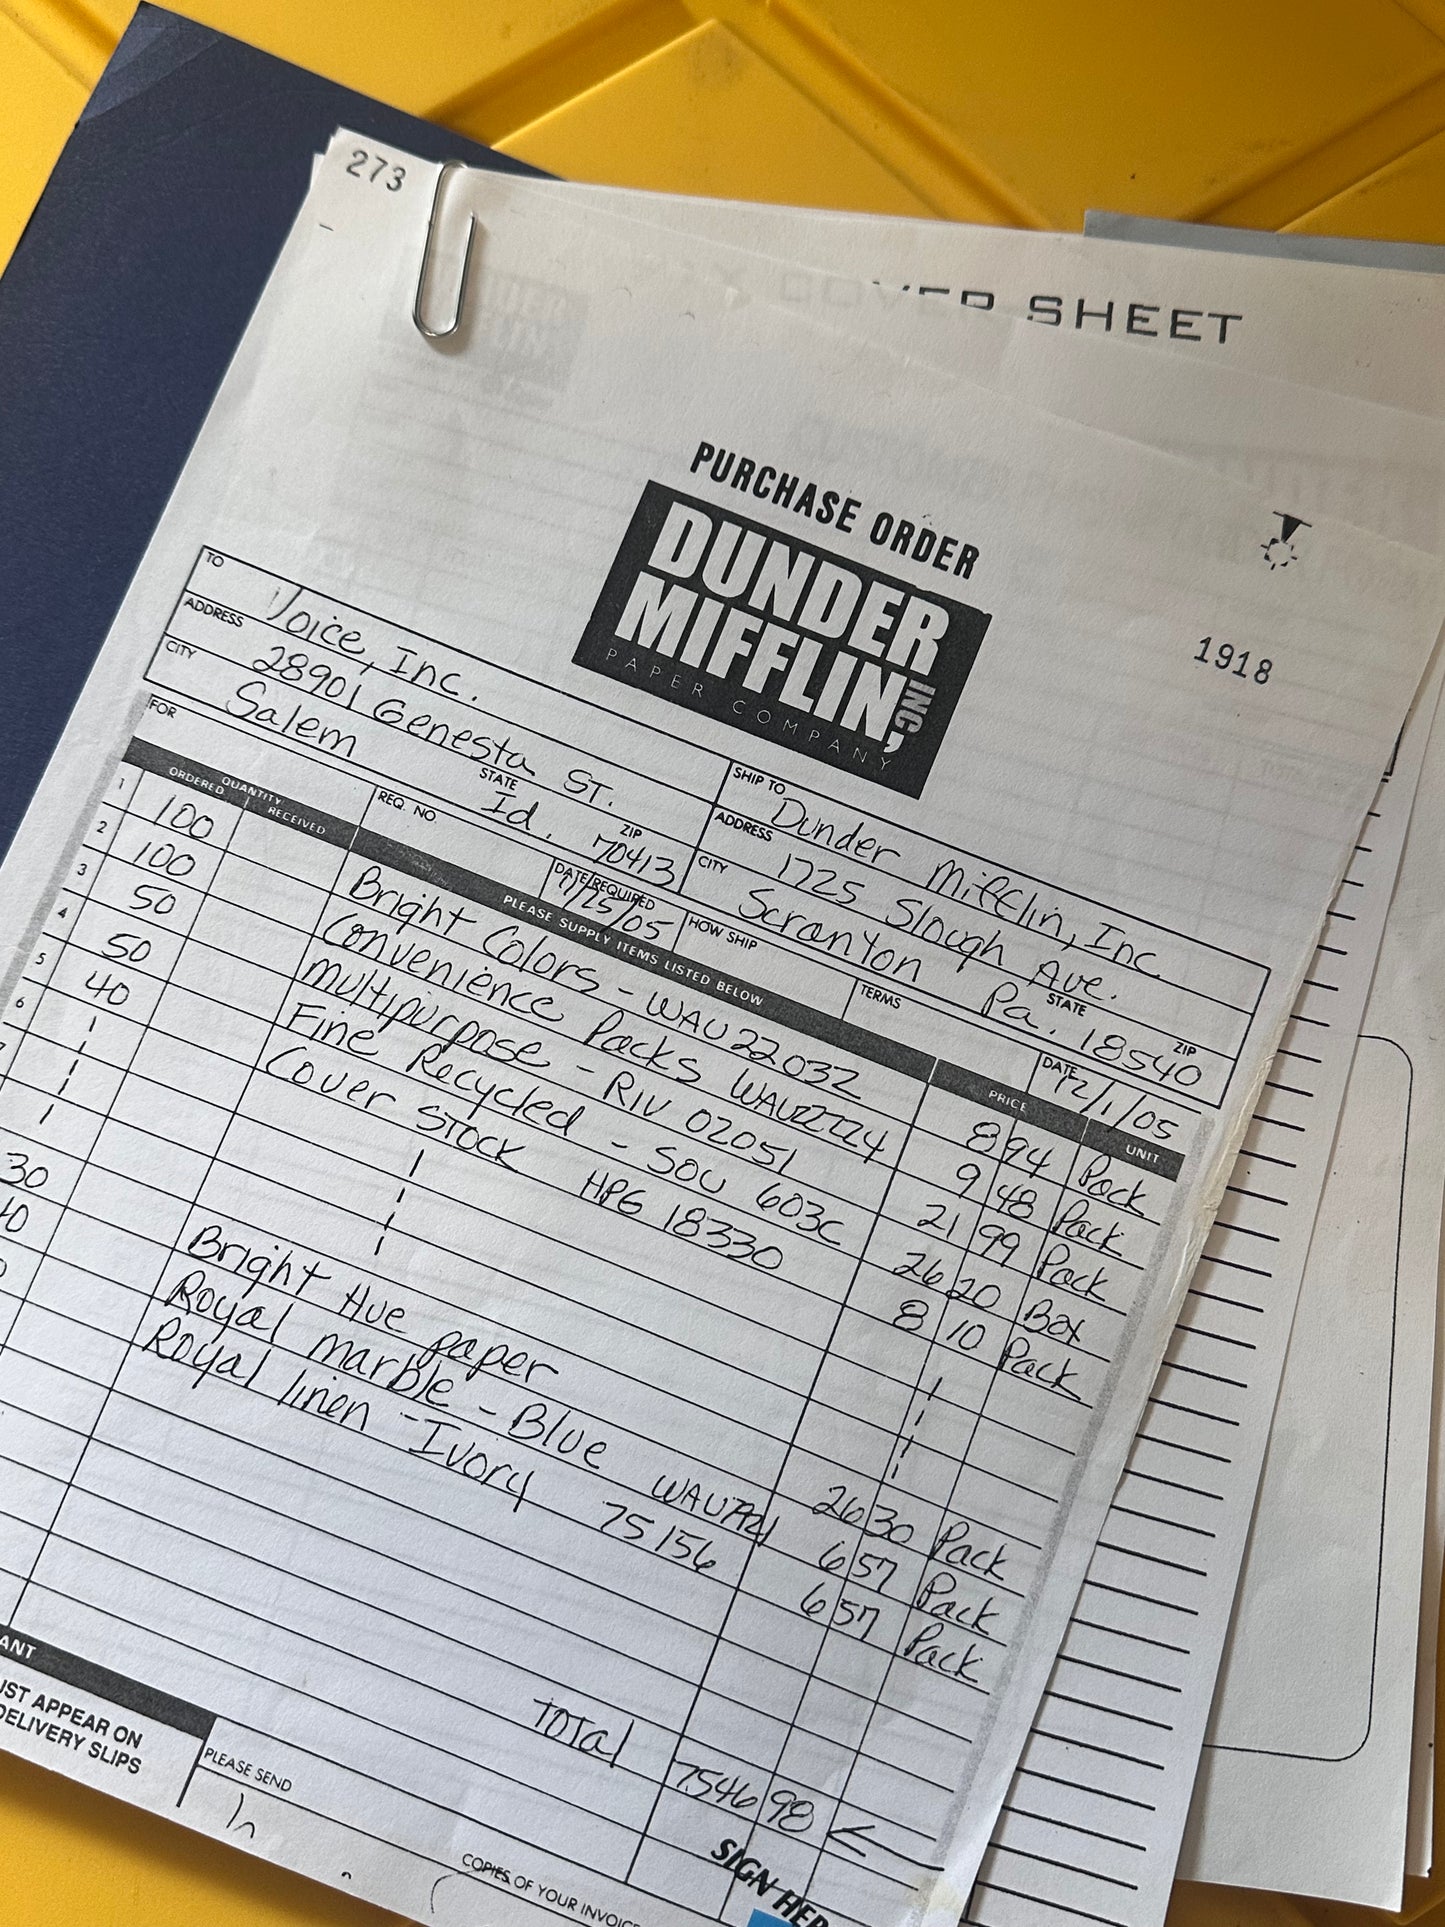 273
COVER SHEET
PURCHASE ORDER
DUNDER
MIFFLIN, INC
PAPER COMPANY
1918
TO Voice, Inc.
ADDRESS 28901 Genesta ST.
CITY Salem STATE Id. ZIP 70413
SHIP TO Dunder Mifflin, Inc
ADDRESS 1725 Slough Ave.
CITY Scranton Pa. STATE 18540 ZIP
FOR REQ. NO DATE REQUIRED 11/25/05 HOW SHIP TERMS DATE 12/1/05
QUANTITY
ORDERED RECEIVED PLEASE SUPPLY ITEMS LISTED BELOW PRICE UNIT
1 100 Bright Colors - WAU22032 8 94 Pack
2 100 Convenience Packs WAU22224 9 48 Pack
3 50 Multipurpose - RIV 02051 21 99 Pack
4 50 Fine Recycled - SOU 603C 26 20 Box
5 40 Cover STOCK HPG 18330 8 10 Pack
6
30 Bright Hue paper 26 30 Pack
40 Royal marble - Blue 6 57 Pack
Royal linen - Ivory 75156 6 57 Pack
Total 7546 98
ANT
UST APPEAR ON
DELIVERY SLIPS
PLEASE SEND
COPIES OF YOUR INVOICE
SIGN HER